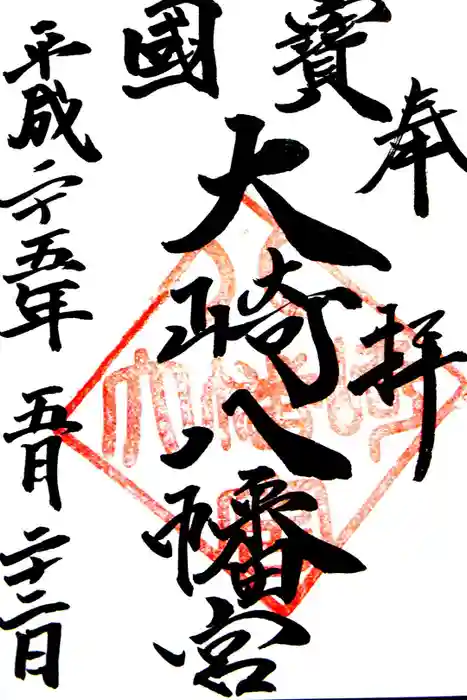 奉拝
國寶
大崎八幡宮
平成二十五年 五月二十二日